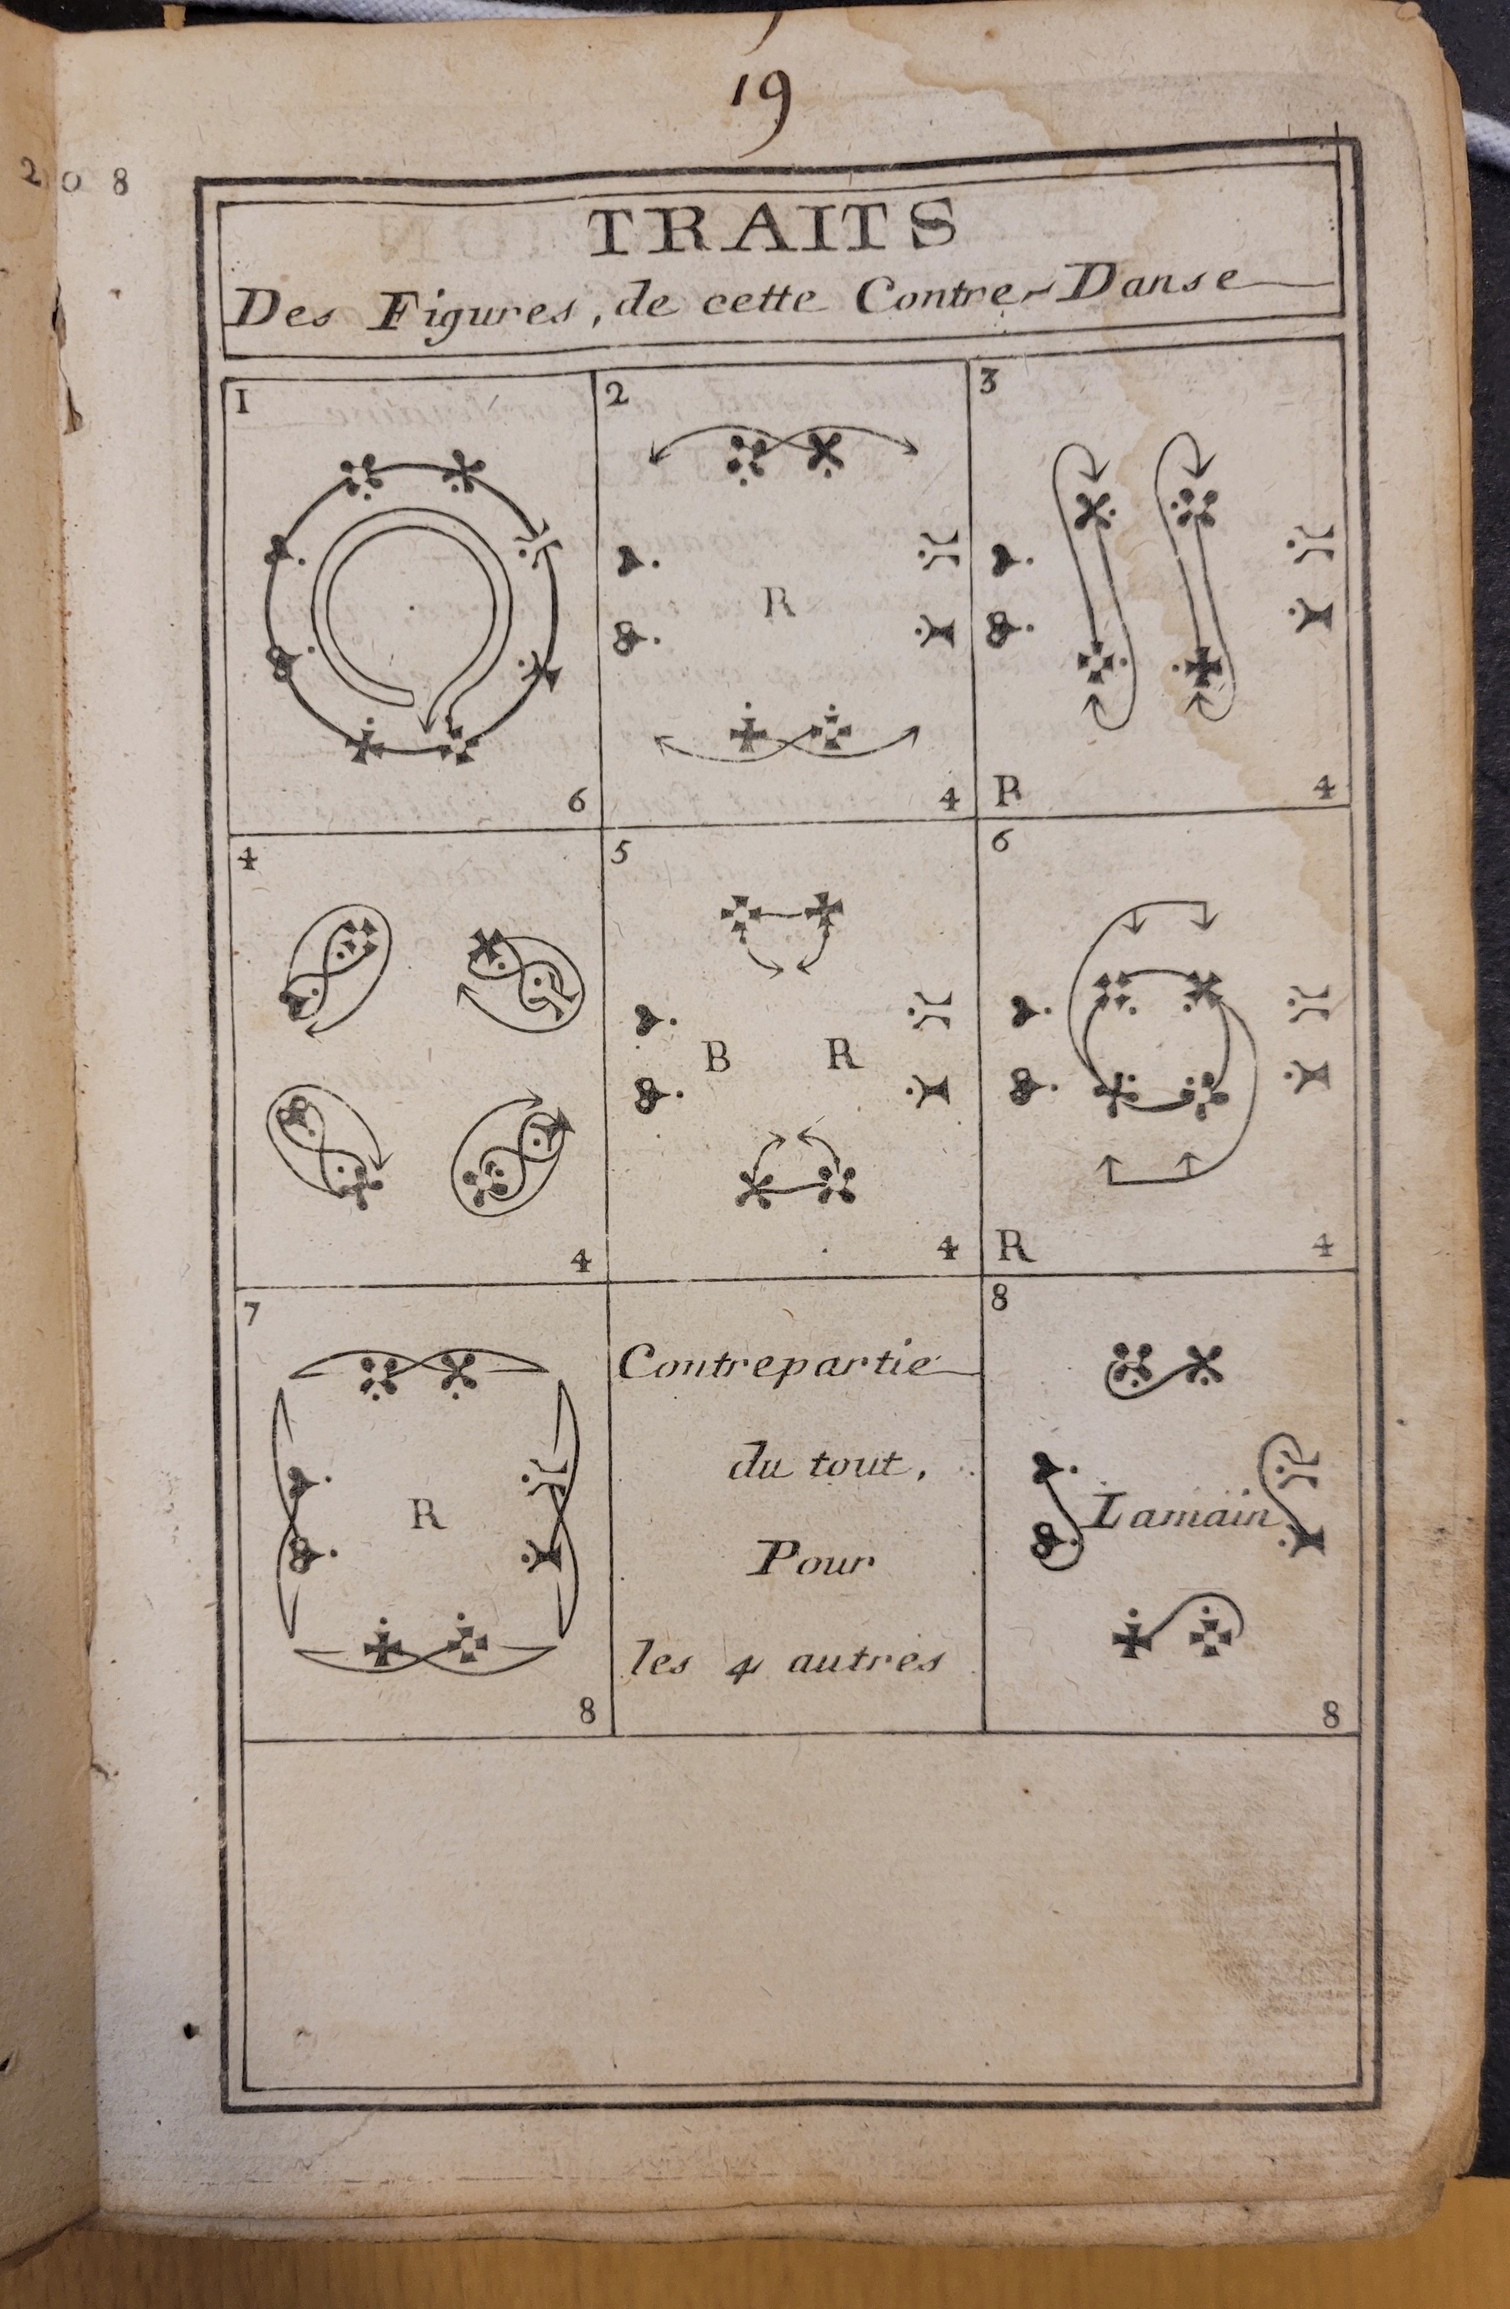 19
208
TRAITS
Des Figures, de cette Contre-Danse
1
6
2
R
4
3
R
4
4
4
5
B R
4
6
R
4
7
R
8
Contrepartie
du tout,
Pour
les 4 autres
8
Lamain
8